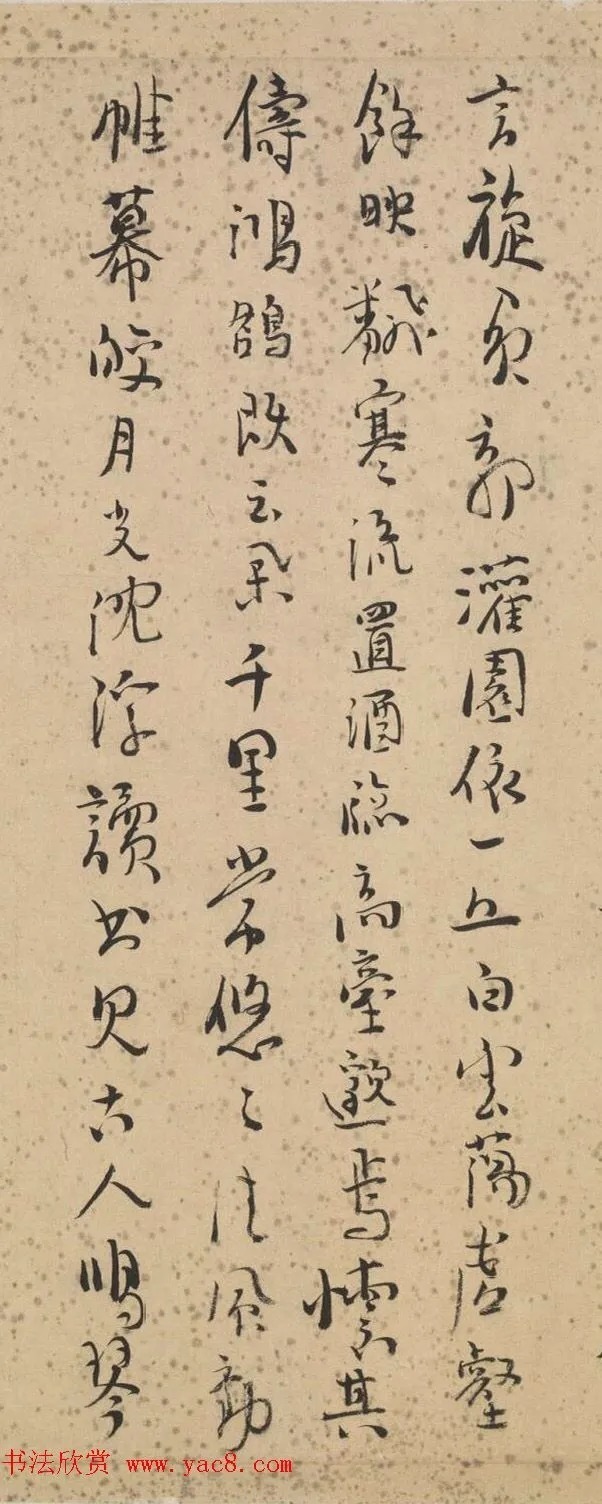 言旋負郭灌園依一丘白雲蕩虛壑
餘映翻寒流置酒臨高臺邈焉懷其
儔鴻鵠既云舉千里常悠〻清風動
帷幕皎月光沈浮讀書見古人鳴琴
书法欣赏 www.yac8.com